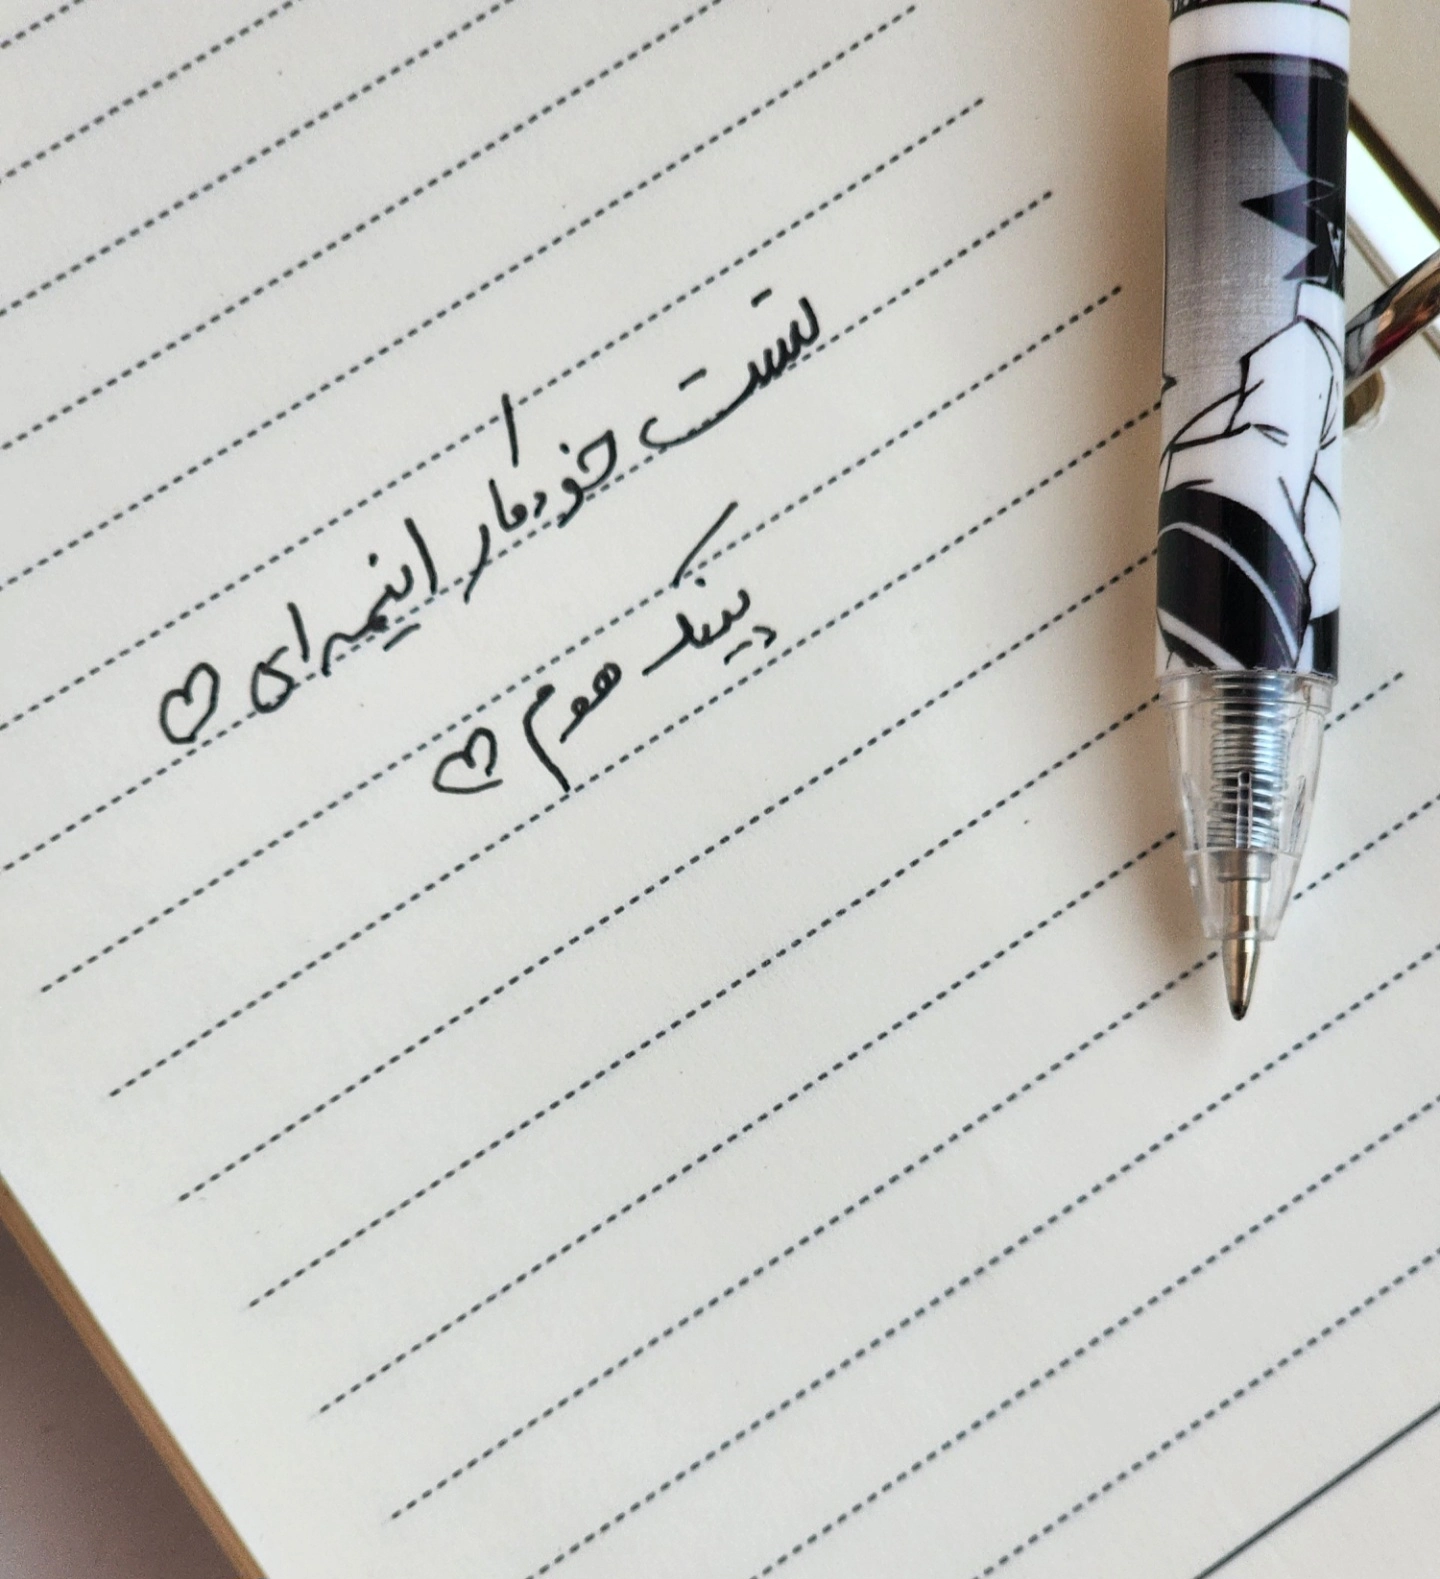 تست خودکار انیمه‌ای ♡
پینک هوم ♡